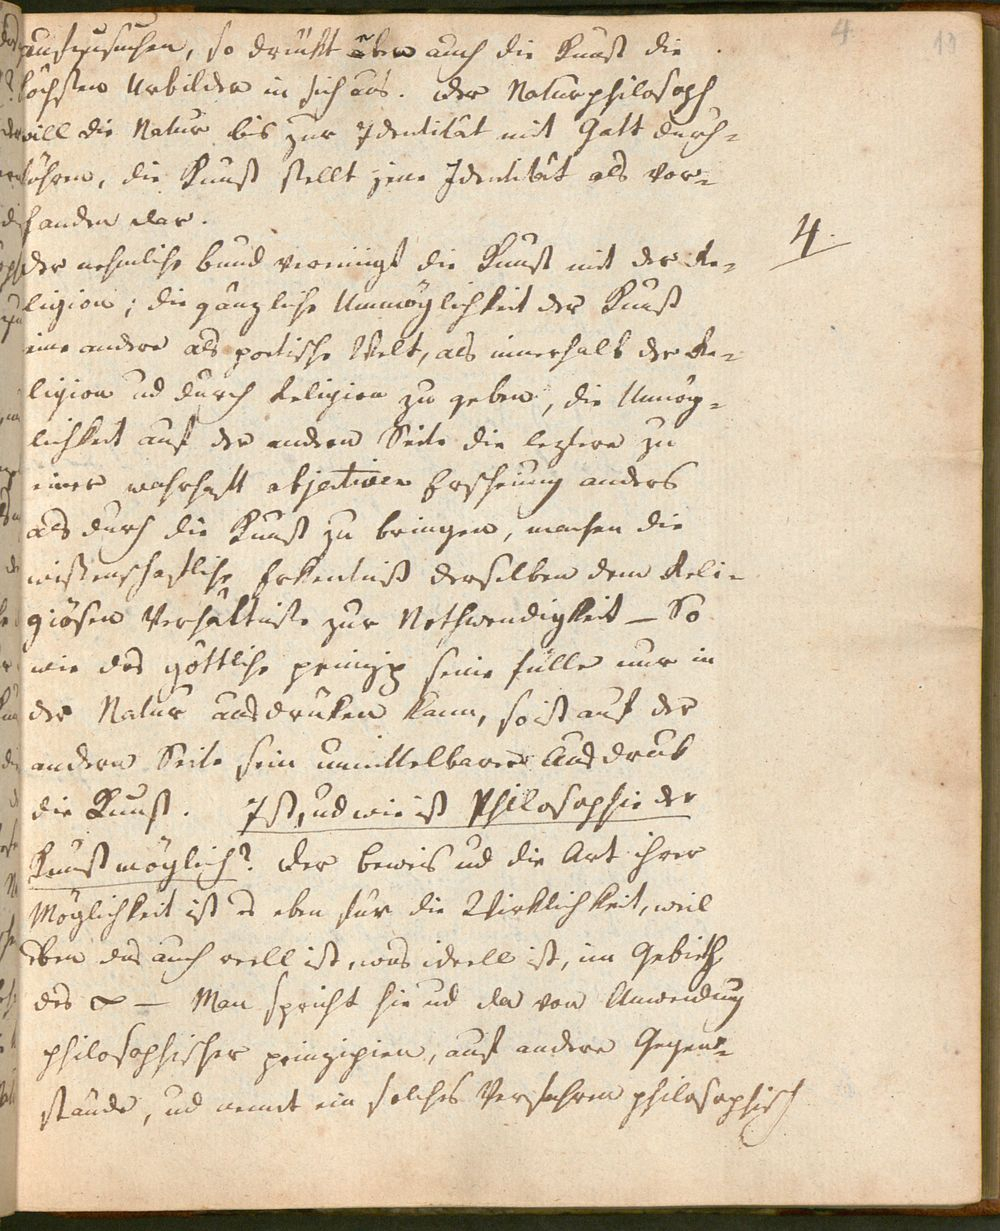 4 13
aufzusuchen, so drükt eben auch die Kunst die
höchsten Urbilder in sich aus. Der Naturphilosoph
will die Natur bis zur Identität mit Gott durch=
führen, die Kunst stellt jene Identität als vor=
handen dar.
4.
Der nehmliche bund vereinigt die Kunst mit der Re=
ligion; die gänzliche Unmöglichkeit der Kunst
eine andere als poetische Welt, als innerhalb der Re=
ligion ud durch Religion zu geben, die Unmög=
lichkeit auf der andern Seite die leztere zu
einer wahrhaft objectiven Erscheinung anders
als durch die Kunst zu bringen, machen die
wissenschaftliche Erkentniß derselben dem Reli=
giösen Verhältnisse zur Nothwendigkeit – So
wie das göttliche prinzip seine fülle nur in
der Natur ausdrüken kann, so ist auf der
andern Seite sein unmittelbarer Ausdruk
die Kunst. Ist, ud wie ist Philosophie der
Kunst möglich? Der beweis ud die Art ihrer
Möglichkeit ist es eben für die Wirklichkeit, weil
eben das auch reell ist, was ideell ist, im Gebieth
des ∞ – Man spricht hie ud da von Anwendung
philosophischer prinzipien, auf andere Gegen=
stände, ud nennt ein solches Verfahren philosophisch